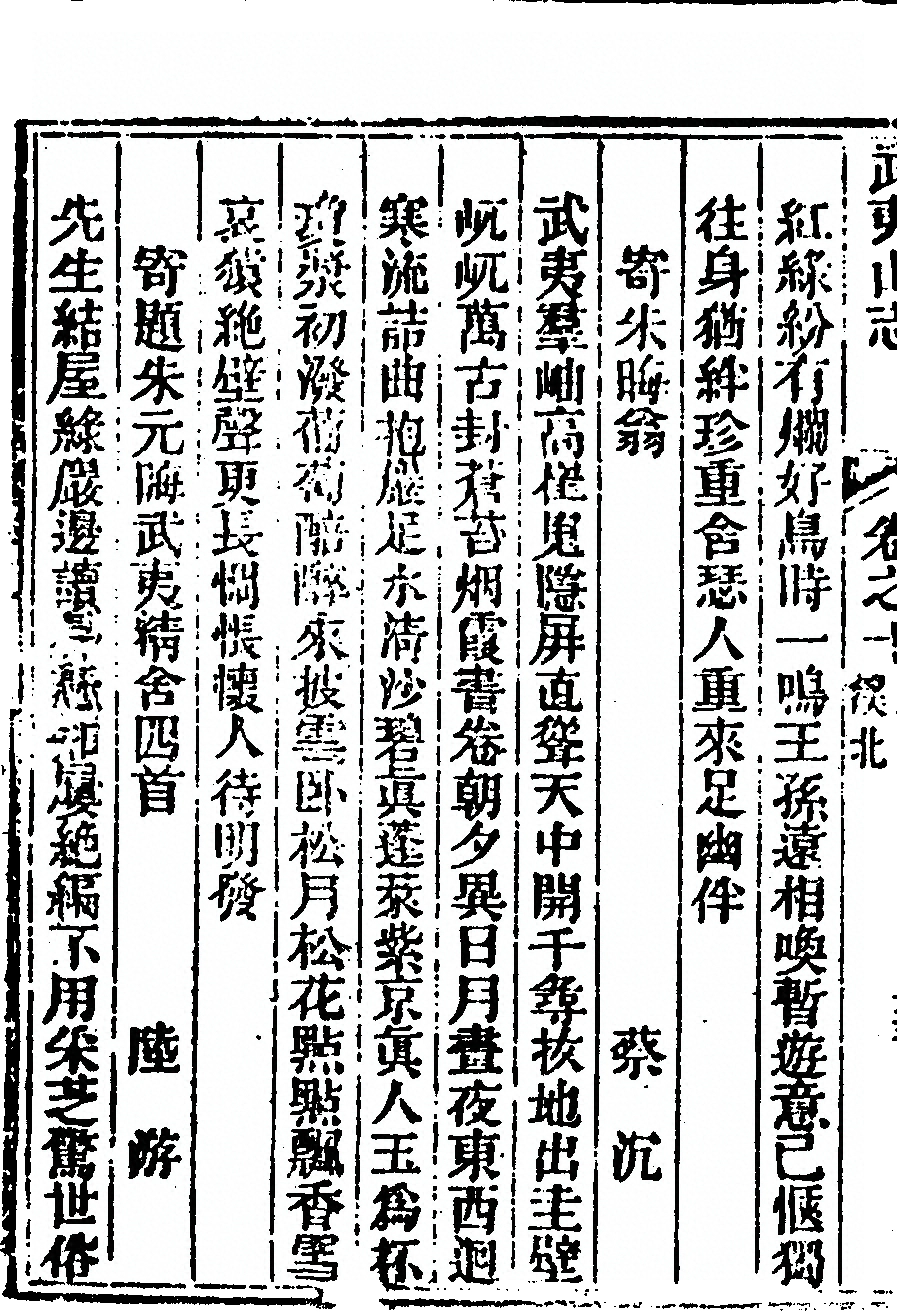 武夷山志 卷之十 谿北
紅綠紛有爛好鳥時一鳴王孫遠相喚暫遊意已愜獨
往身猶絆珍重舍瑟人重來足幽伴
寄朱晦翁 蔡沉
武夷羣岫高崔嵬隱屏直聳天中開千尋拔地出圭璧
屼屼萬古封蒼苔烟霞書卷朝夕異日月晝夜東西迴
寒流詰曲抱巖足水清沙碧眞蓬萊紫京眞人玉爲杯
瓊漿初潑葡萄醅醉來披雲臥松月松花點點飄香雪
哀猿絶壁聲更長惆悵懷人待明發
寄題朱元晦武夷精舍四首 陸游
先生結屋綠巖邊讀易懸屢絶編不用采芝驚世俗